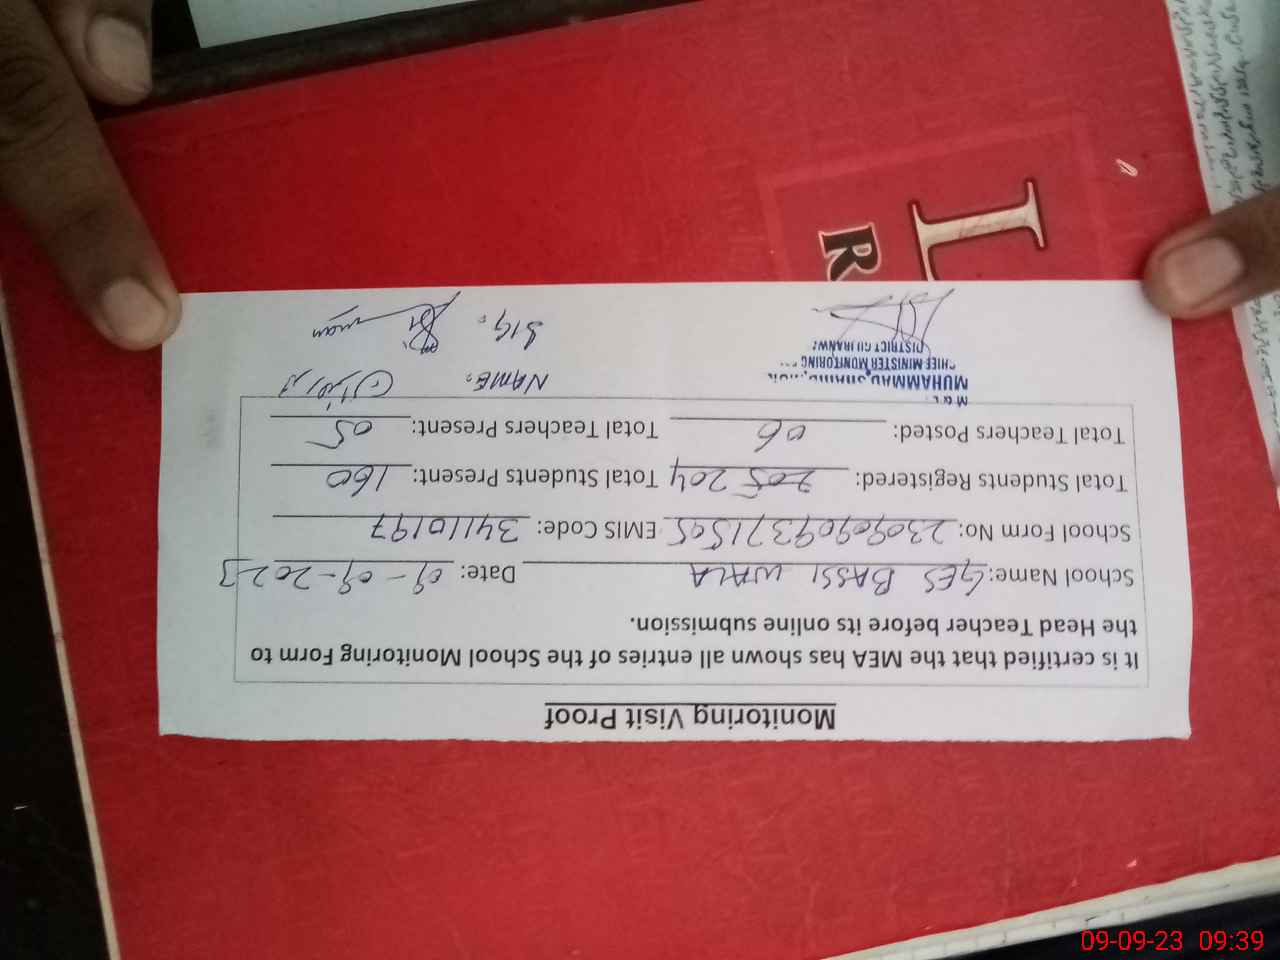 Monitoring Visit Proof
It is certified that the MEA has shown all entries of the School Monitoring Form to
the Head Teacher before its online submission.
School Name: GES BASSI WALA Date: 09-09-2023
School Form No: 23090909371505 EMIS Code: 34110197
Total Students Registered: 205 204 Total Students Present: 160
Total Teachers Posted: 06 Total Teachers Present: 05
MUHAMMAD NAME:
CHIEF MINISTER MONITORING
DISTRICT GUJRANWA SIG:
L
R
09-09-23 09:39